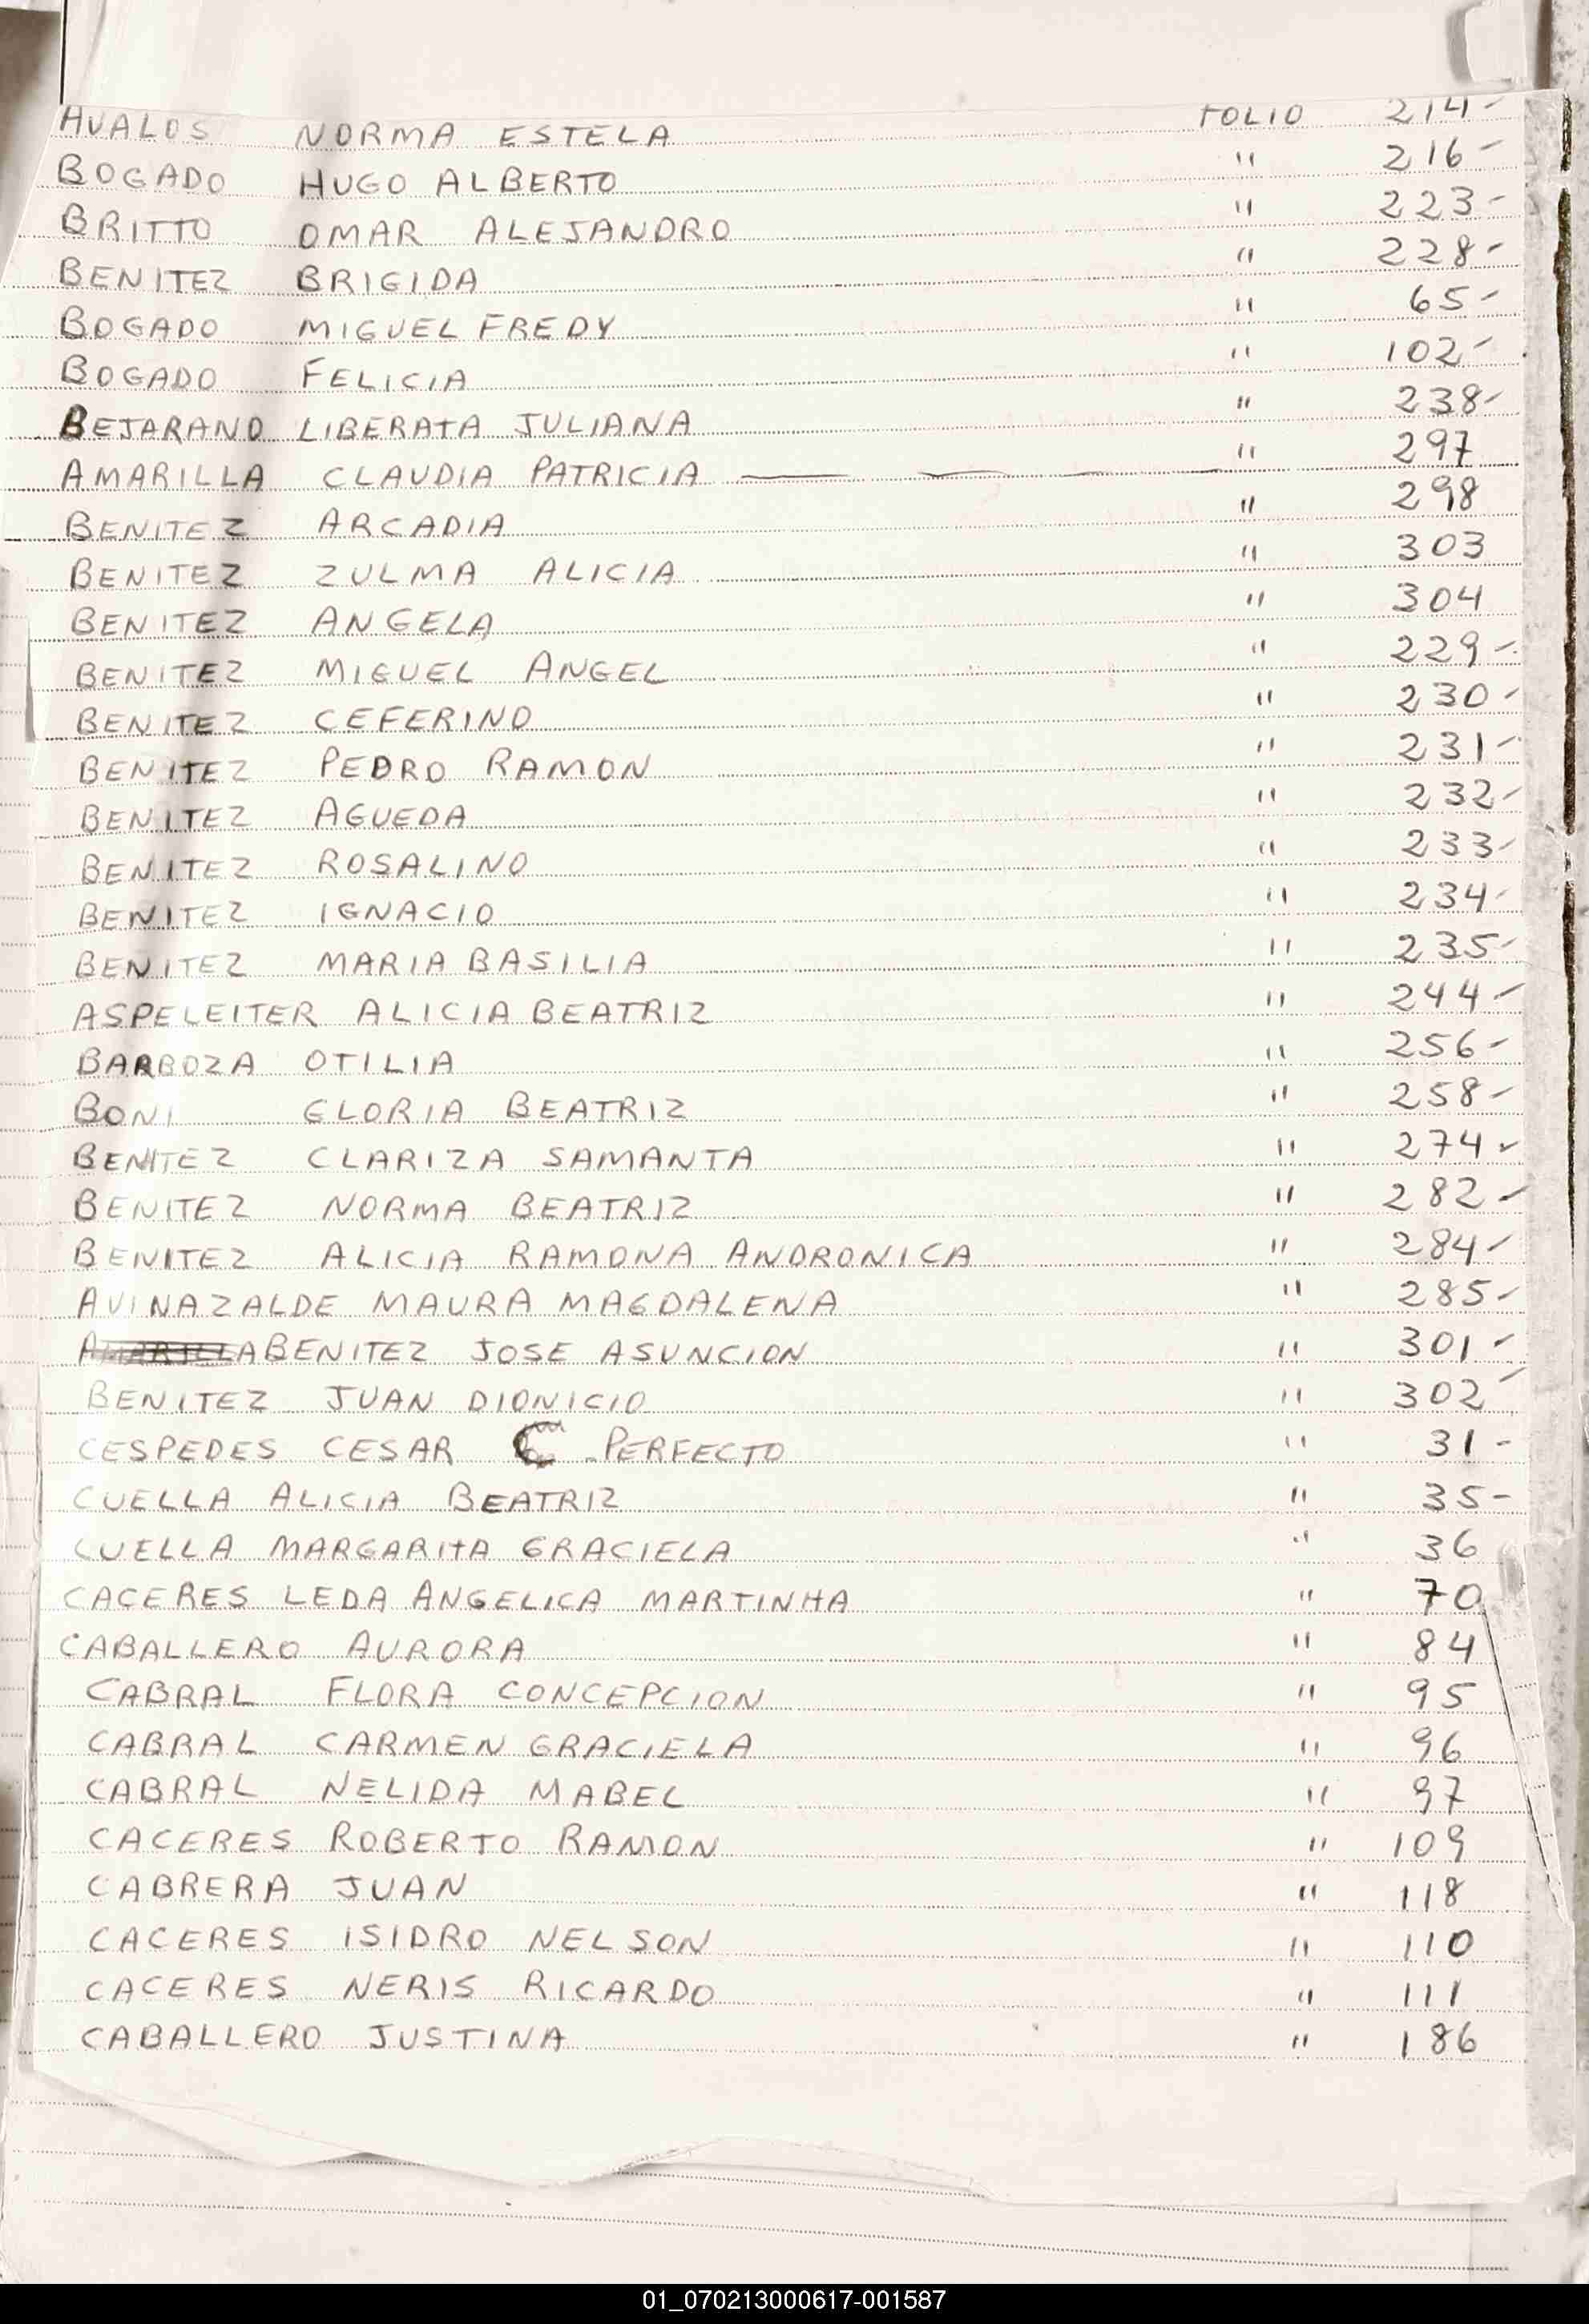 AVALOS NORMA ESTELA FOLIO 214-
BOGADO HUGO ALBERTO " 216-
BRITTO OMAR ALEJANDRO " 223-
BENITEZ BRIGIDA " 228-
BOGADO MIGUEL FREDY " 65-
BOGADO FELICIA " 102-
BEJARANO LIBERATA JULIANA " 238-
AMARILLA CLAUDIA PATRICIA " 297
BENITEZ ARCADIA " 298
BENITEZ ZULMA ALICIA " 303
BENITEZ ANGELA " 304
BENITEZ MIGUEL ANGEL " 229-
BENITEZ CEFERINO " 230-
BENITEZ PEDRO RAMON " 231-
BENITEZ AGUEDA " 232-
BENITEZ ROSALINO " 233-
BENITEZ IGNACIO " 234-
BENITEZ MARIA BASILIA " 235-
ASPELEITER ALICIA BEATRIZ " 244-
BARBOZA OTILIA " 256-
BONI GLORIA BEATRIZ " 258-
BENITEZ CLARIZA SAMANTA " 274-
BENITEZ NORMA BEATRIZ " 282-
BENITEZ ALICIA RAMONA ANDRONICA " 284-
AVINAZALDE MAURA MAGDALENA " 285-
AMARILLA BENITEZ JOSE ASUNCION " 301-
BENITEZ JUAN DIONICIO " 302-
CESPEDES CESAR PERFECTO " 31-
CUELLA ALICIA BEATRIZ " 35-
CUELLA MARGARITA GRACIELA " 36
CACERES LEDA ANGELICA MARTINHA " 70
CABALLERO AURORA " 84
CABRAL FLORA CONCEPCION " 95
CABRAL CARMEN GRACIELA " 96
CABRAL NELIDA MABEL " 97
CACERES ROBERTO RAMON " 109
CABRERA JUAN " 118
CACERES ISIDRO NELSON " 110
CACERES NERIS RICARDO " 111
CABALLERO JUSTINA " 186
01_070213000617-001587